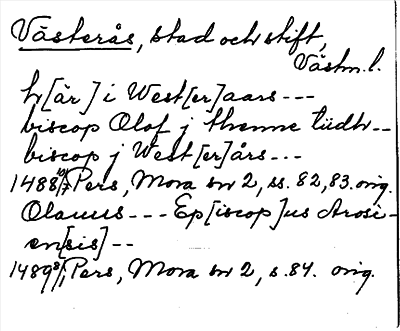 Västerås, stad och stift,
Västm.l.
h[är] i West[er]aars ---
biscop Olof j thenne tiidh --
biscop j West[er]års ---
1488 10/7 Pers, Mora nr 2, ss. 82, 83. orig.
Olauus --- Ep[iscop]us Arosi-
en[sis] --
1489 3/1 Pers, Mora nr 2, s. 84. orig.